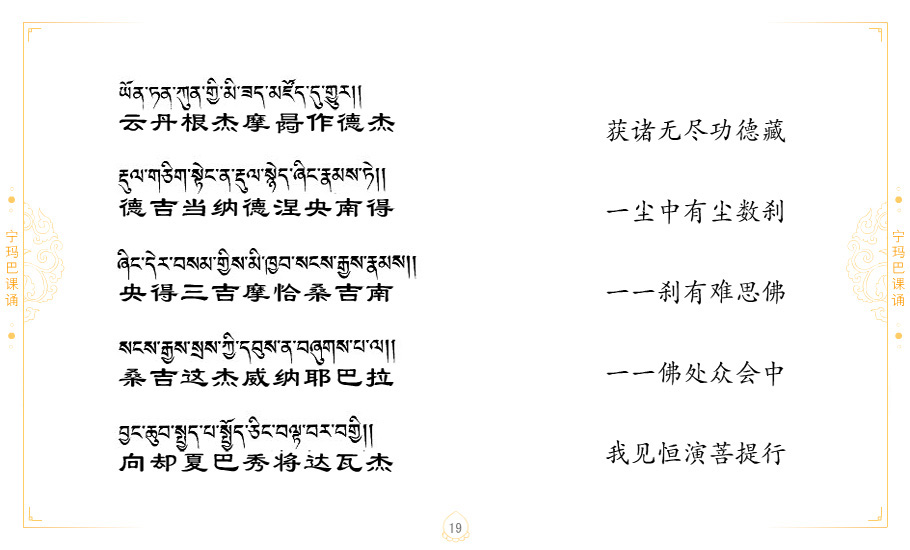 ཡོན་ཏན་ཀུན་གྱི་མི་ཟད་མཛོད་དུ་གྱུར།།
云丹根杰摩噶作德杰
获诸无尽功德藏
རྡུལ་གཅིག་སྟེང་ན་རྡུལ་སྙེད་ཞིང་རྣམས་ཏེ།།
德吉当纳德涅央南得
一尘中有尘数刹
ཞིང་དེར་བསམ་གྱིས་མི་ཁྱབ་སངས་རྒྱས་རྣམས།།
央得三吉摩恰桑吉南
一一刹有难思佛
སངས་རྒྱས་སྲས་ཀྱི་དབུས་ན་བཞུགས་པ་ལ།།
桑吉这杰威纳耶巴拉
一一佛处众会中
བྱང་ཆུབ་སྤྱད་པ་སྤྱོད་ཅིང་བལྟ་བར་བགྱི།།
向却夏巴秀将达瓦杰
我见恒演菩提行
宁玛巴课诵
宁玛巴课诵
19